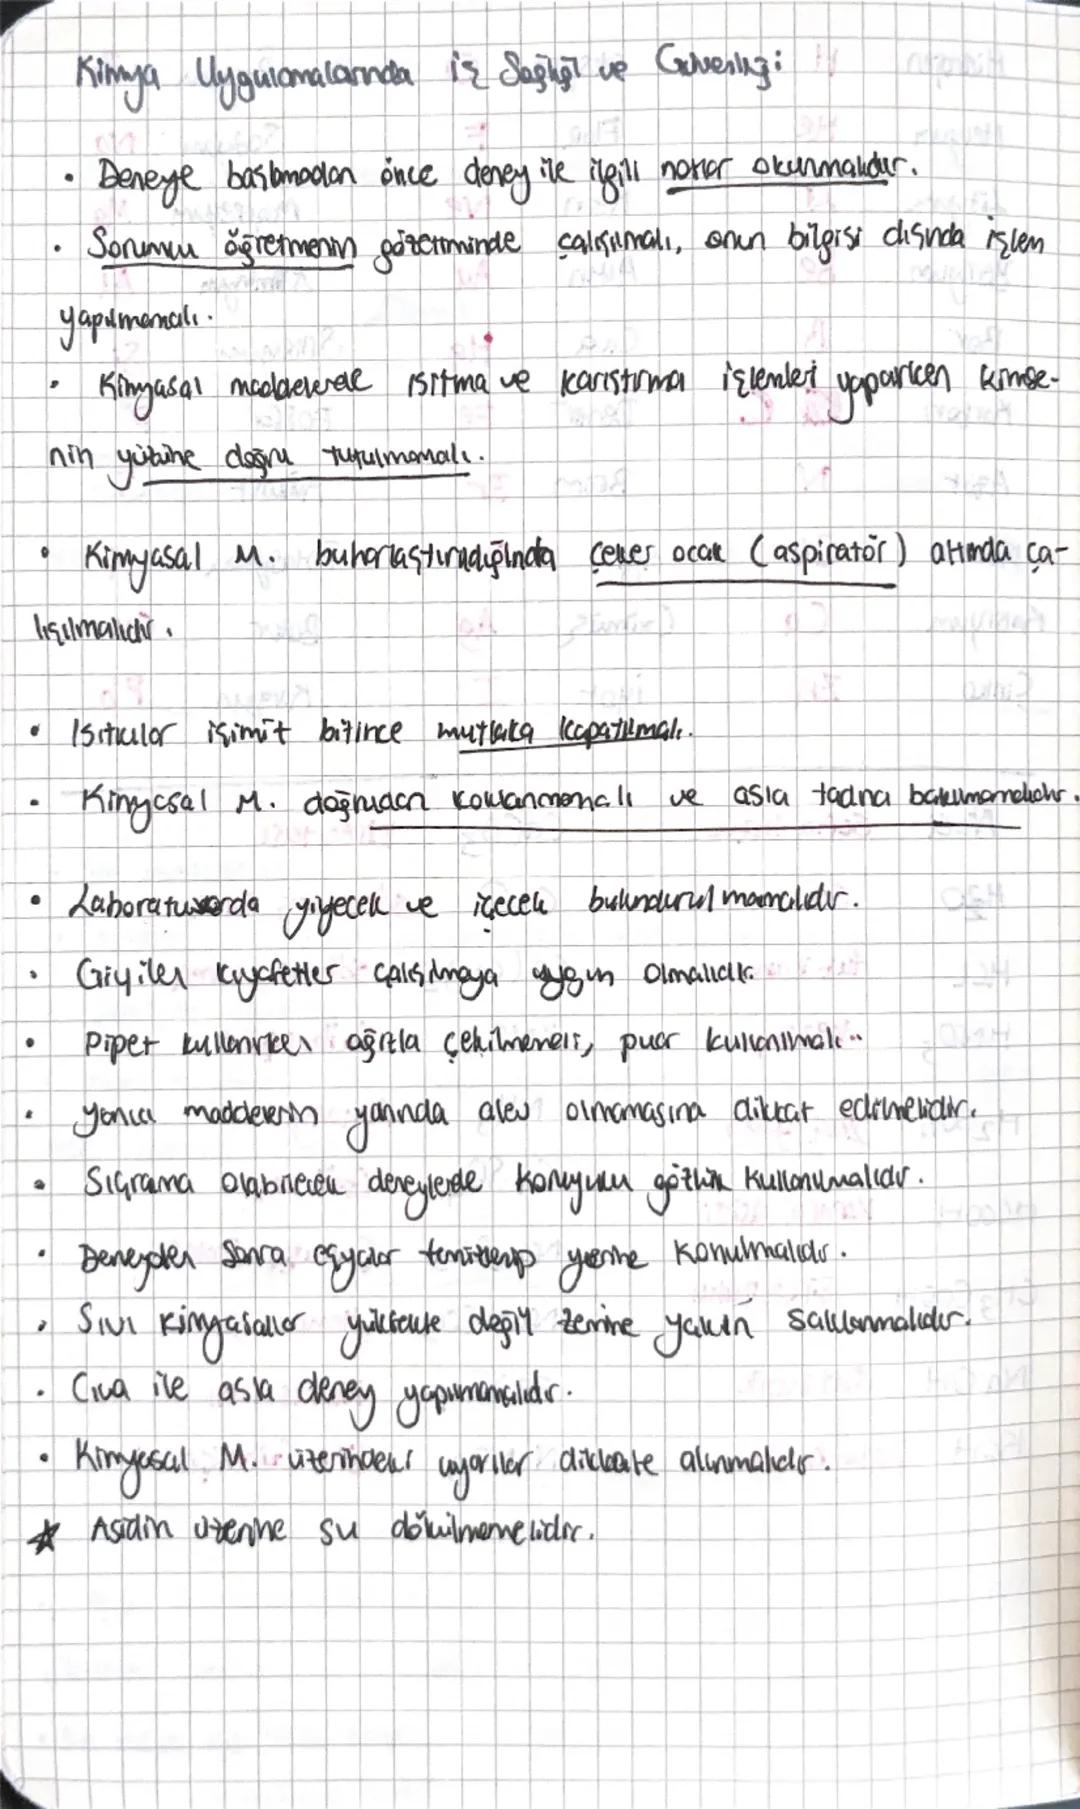 Kimya Uygulamalarında iş Sağlığı ve Güvenliği
• Deneye başlamadan önce deney ile ilgili notlar okunmalıdır.
• Sorumlu öğretmenin gözetiminde çalışılmalı, onun bilgisi dışında işlem
yapılmamalı.
• Kimyasal maddelerde ısıtma ve karıştırma işlemleri yaparken kimse-
nin yüzüne doğru tutulmamalı.
• Kimyasal M. buharlaştırıldığında çeker ocak (aspiratör) altında ça-
lışılmalıdır.
• Isıtıcılar işimiz bitince mutlaka kapatılmalı.
• Kimyasal M. doğrudan koklanmamalı ve asla tadına bakılmamalıdır.
• Laboratuvarda yiyecek ve içecek bulundurulmamalıdır.
• Giyilen kıyafetler çalışılmaya uygun olmalıdır.
• Pipet kullanırken ağızla çekilmemeli, puar kullanılmalı..
• Yanıcı maddelerin yanında alev olmamasına dikkat edilmelidir.
• Sıçrama olabilecek deneylerde koruyucu gözlük kullanılmalıdır.
• Deneyden sonra eşyalar temizlenip yerine konulmalıdır.
• Sıvı kimyasallar yüksekte değil zemine yakın saklanmalıdır.
• Cıva ile asla deney yapılmamalıdır.
• Kimyasal M. üzerindeki uyarılar dikkate alınmalıdır.
☆ Asidin üzerine su dökülmemelidir.